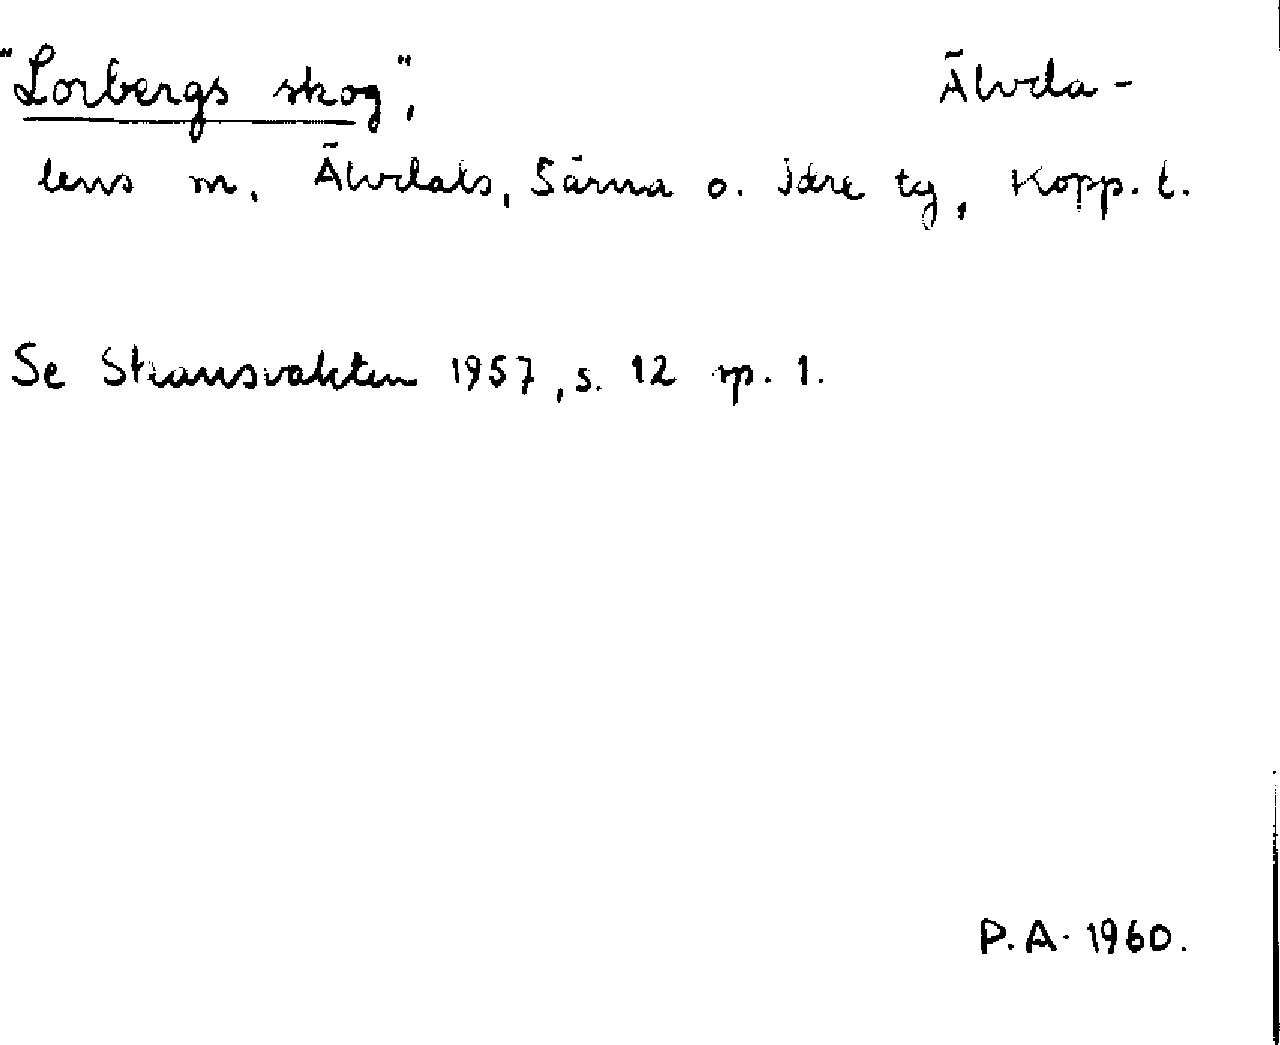 "Lorbergs skog", Älvda-
lens m. Älvdals, Särna o. Idre tg, Kopp. l.
Se Skansvakten 1957, s. 12 sp. 1.
P.A. 1960.